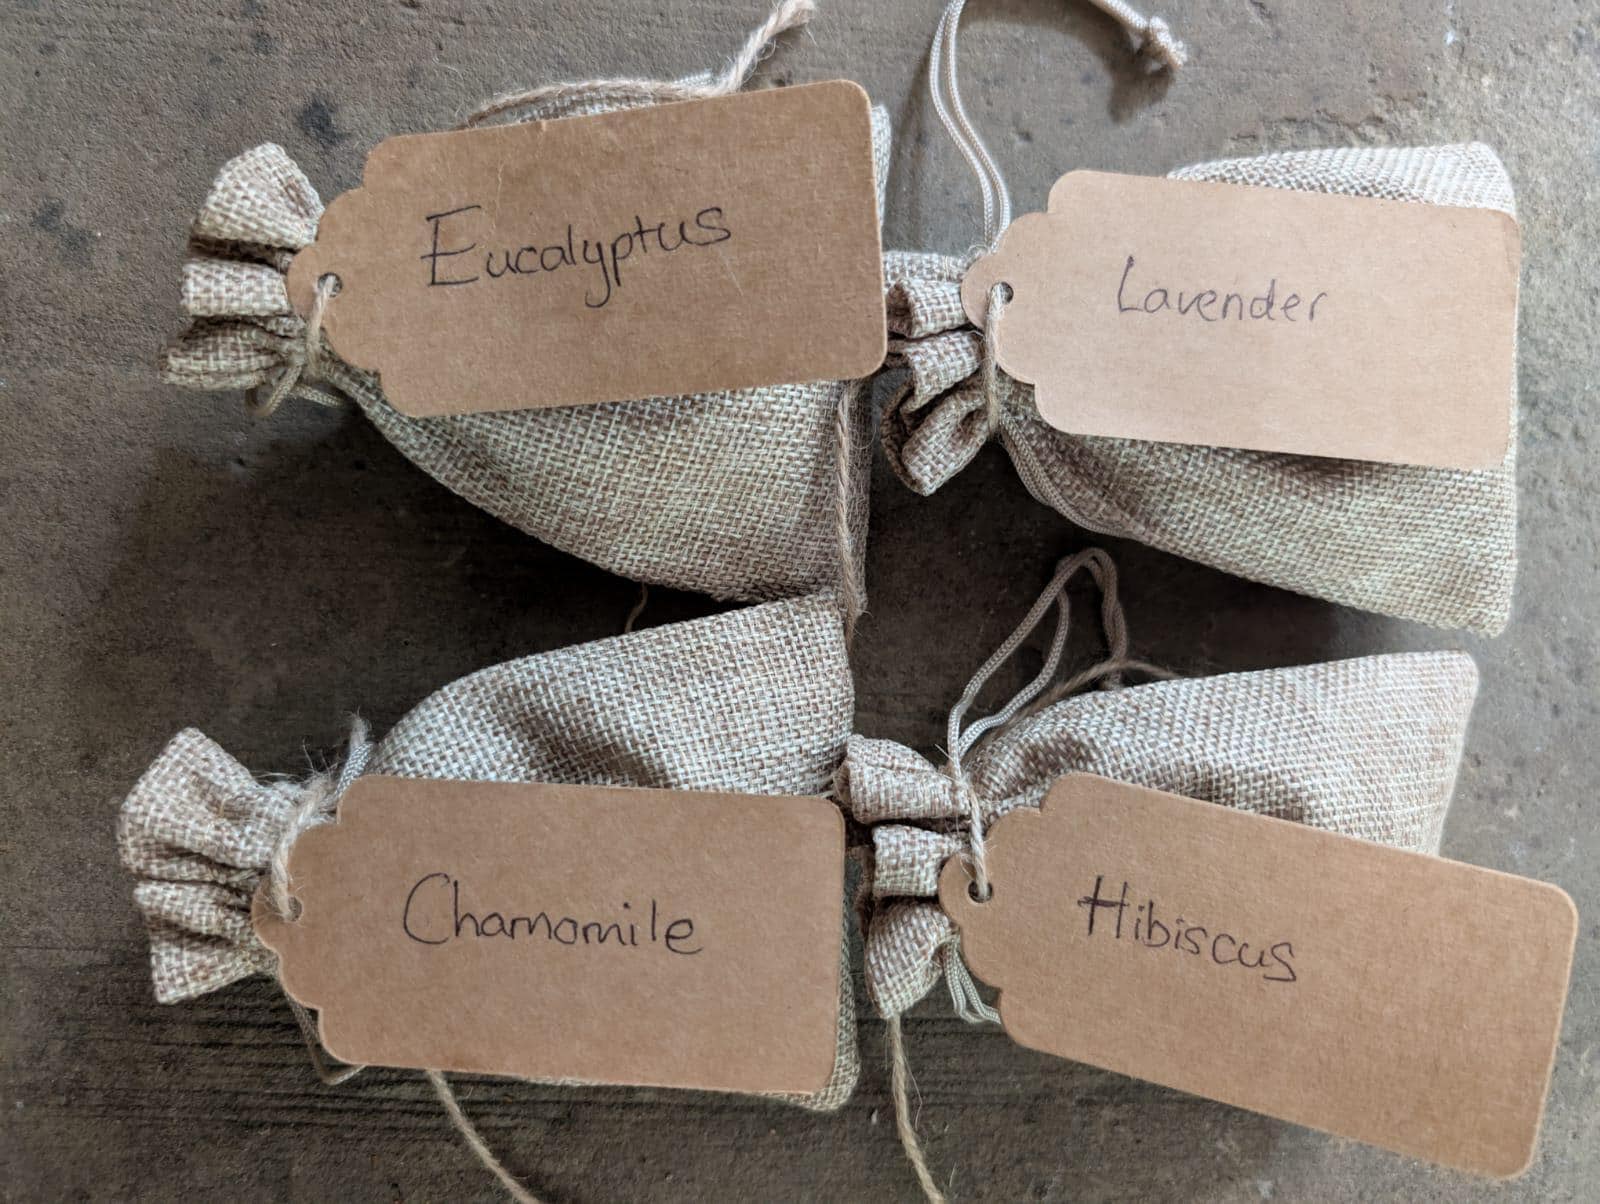 Eucalyptus
Lavender
Chamomile
Hibiscus